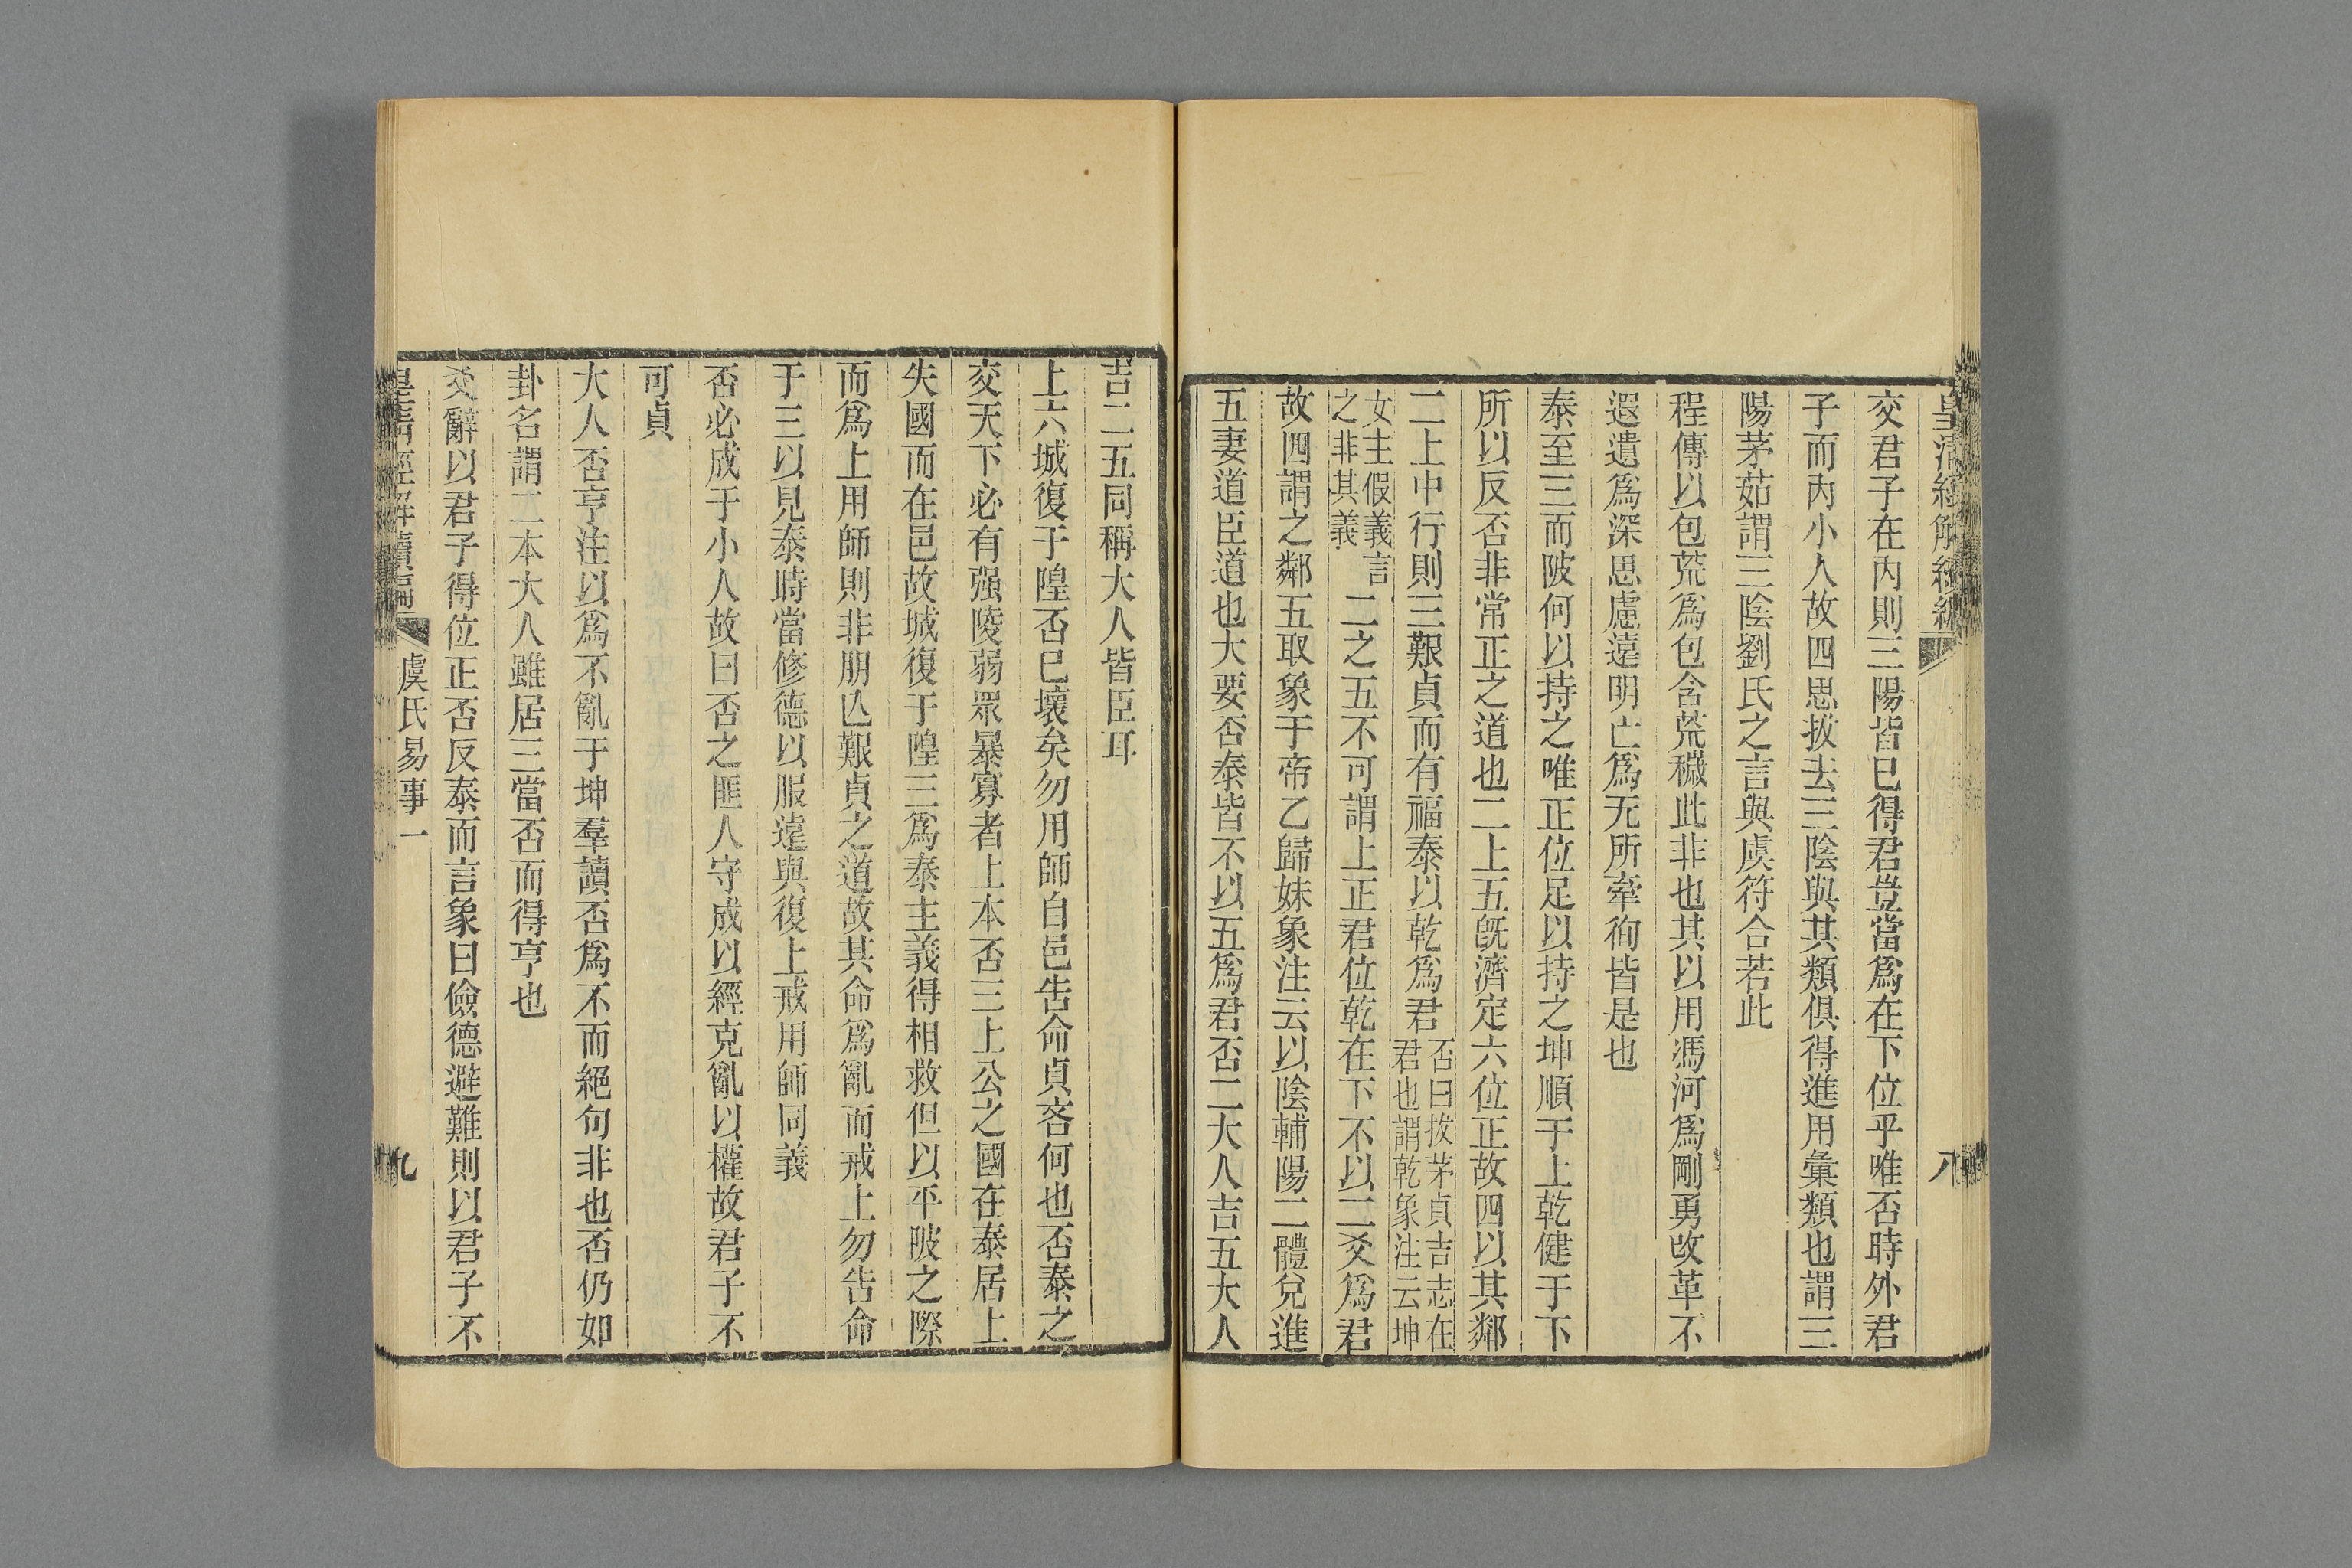 皇清經解續編
八
交君子在內則三陽皆已得君豈當爲在下位乎唯否時外君
子而內小人故四思拔去三陰與其類俱得進用彙類也謂三
陽茅茹謂三陰劉氏之言與虞符合若此
程傳以包荒爲包含荒穢此非也其以用馮河爲剛勇改革不
遐遺爲深思慮遠明亡爲无所牽徇皆是也
泰至三而陂何以持之唯正位足以持之坤順于上乾健于下
所以反否非常正之道也二上五旣濟定六位正故四以其鄰
二上中行則三艱貞而有福泰以乾爲君否曰拔茅貞吉志在君也謂乾象注云坤
女主假義言之非其義二之五不可謂上正君位乾在下不以二爻爲君
故四謂之鄰五取象于帝乙歸妹象注云以陰輔陽二體兌進
五妻道臣道也大要否泰皆不以五爲君否二大人吉五大人
吉二五同稱大人皆臣耳
上六城復于隍否已壞矣勿用師自邑告命貞吝何也否泰之
交天下必有强陵弱眾暴寡者上本否三上公之國在泰居上
失國而在邑故城復于隍三爲泰主義得相救但以平陂之際
而爲上用師則非朋亾艱貞之道故其命爲亂而戒上勿告命
于三以見泰時當修德以服遠與復上戒用師同義
否必成于小人故曰否之匪人守成以經克亂以權故君子不
可貞
大人否亨注以爲不亂于坤羣讀否爲不而絕句非也否仍如
卦名謂二本大人雖居三當否而得亨也
爻辭以君子得位正否反泰而言象曰儉德避難則以君子不
皇清經解續編
虞氏易事一
九